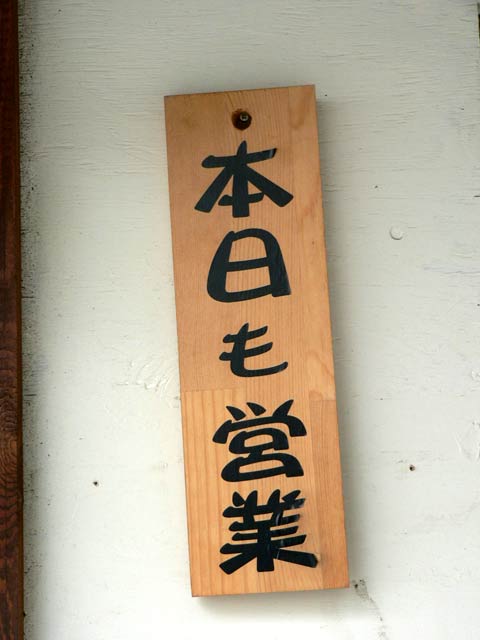 本日も営業